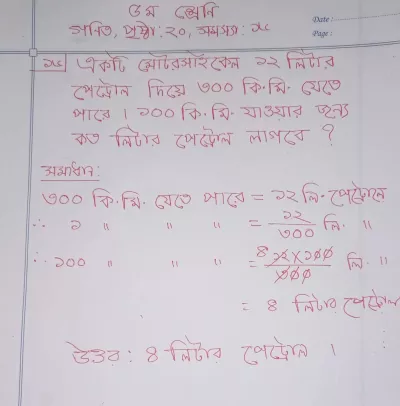 ৫ম শ্রেনি
গনিত, পৃষ্ঠা: ২০, সমস্যা: ১৫
Date :
Page :
১৫ একটি মোটরসাইকেল ১২ লিটার
পেট্রোল দিয়ে ৩০০ কি.মি. যেতে
পারে । ১০০ কি.মি. যাওয়ার জন্য
কত লিটার পেট্রোল লাগবে ?
সমাধান:
৩০০ কি.মি. যেতে পারে = ১২ লি. পেট্রোলে
∴ ১ " " " = ১২/৩০০ লি. "
∴ ১০০ " " " = ৪ ১২ X ১০০/৩০০ লি. "
= ৪ লিটার পেট্রোল
উত্তর : ৪ লিটার পেট্রোল ।